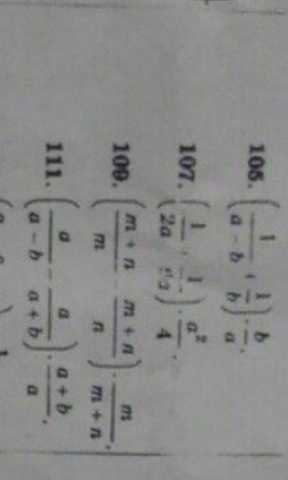 105. (1/(a - b) + 1/b) · b/a.
107. (1/2a + 1/a) · a²/4.
109. ((m + n)/m - (m + n)/n) · m/(m + n).
111. (a/(a - b) - a/(a + b)) · (a + b)/a.